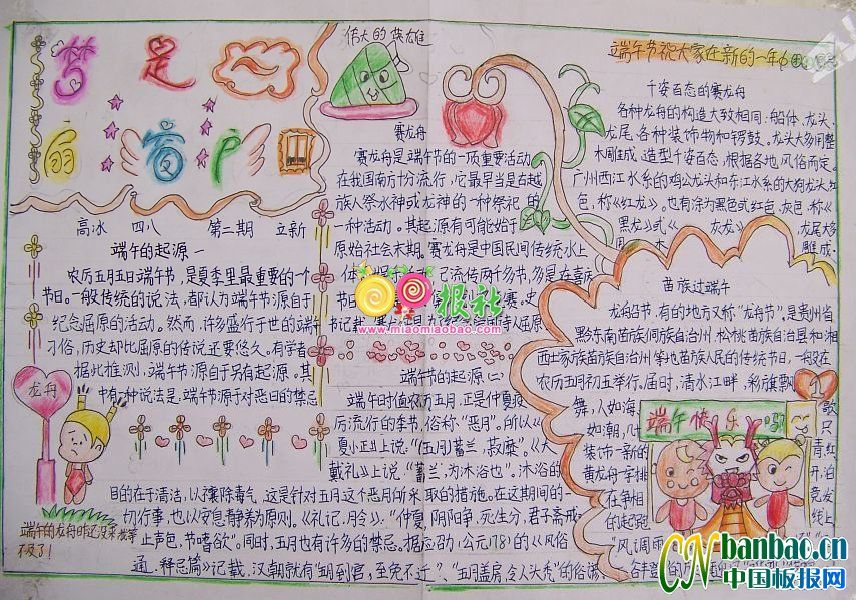 梦是
窗户
高冰 四八 第二期 立新
端午的起源一
农历五月五日端午节，是夏季里最重要的一个
节日。一般传统的说法，都认为端午节源自于
纪念屈原的活动。然而，许多盛行于世的端午
习俗，历史却比屈原的传说还要悠久。有学者
据此推测，端午节源自于另有起源。其
中有一种说法是，端午节源于对恶日的禁忌
龙舟
端午的龙舟咋还没来
不及了！
伟大的英雄
赛龙舟
赛龙舟是端午节的一项重要活动，
在我国南方十分流行，它最早当是古越
族人祭水神或龙神的一种祭祀的
一种活动。其起源有可能始于
原始社会末期。赛龙舟是中国民间传统水上
己流传两千多节，多是在喜庆
书记载，
诗人屈原
根社
www.miaomiaobao.com
端午节的起源(二)
端午时值农历五月，正是仲夏疫
厉流行的季节，俗称"恶月"。所以《
夏小正》上说，"(五月)蓄兰，菽糜"。《大
戴礼》上说，"蓄兰，为沐浴也"。沐浴的
目的在于清洁，以禳除毒气，这是针对五月这个恶月所采取的措施。在这期间的一
切行事，也以安息静养为原则。《礼记.月令》："仲夏，阴阳争，死生分，君子斋戒
止声色，节嗜欲"。同时，五月也有许多的禁忌。据应劭(公元178)的《风俗
通.释忌篇》记载，汉朝就有"五月到官，至免不迁"、"五月盖房，令人头秃"的俗谚，
端午节祝大家在新的一年
千姿百态的赛龙舟
各种龙舟的构造大致相同：船体、龙头、
龙尾、各种装饰物和锣鼓。龙头大多用整
木雕成，造型千姿百态，根据各地风俗而定。
广州西江水系的鸡公龙头和东江水系的大狗龙头红
色，称《红龙》。也有涂为黑色或红色、灰色，称《
黑龙》式《 灰龙》 龙尾多
用 木 雕成，
苗族过端午
龙舟节，有的地方又称"龙舟节"，是贵州省
黔东南苗族侗族自治州、松桃苗族自治县和湘
西土家族苗族自治州等地苗族人民的传统节日，一般在
农历五月初五举行。届时，清水江畔，彩旗飘
舞，人如海 歌
如潮，几 只
装饰一新的 青、红、
黄龙舟一字排 开，
在争相 竞发
的起跑 线上
"风调雨
端午快乐
CNbanbao.cn
中国板报网